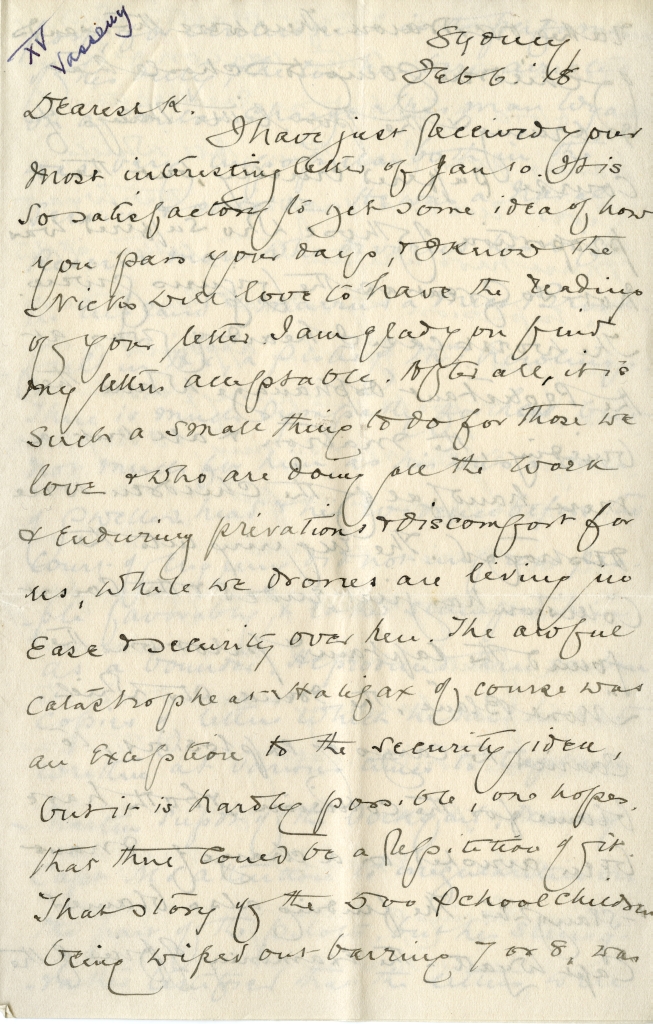 XV
Vasseny
Sydney
Feb 6. 18
Dearest K.
I have just received your
most interesting letter of Jan 10. It is
so satisfactory to get some idea of how
you pass your days, & I know the
Nicks will love to have the reading
of your letter. I am glad you find
my letters acceptable. After all, it is
such a small thing to do for those we
love & who are doing all the work
& enduring privations & discomfort for
us, while we drones are living in
ease & security over here. The awful
catastrophe at Halifax of course was
an exception to the security idea,
but it is hardly possible, one hopes,
that there could be a repitition of it.
That story of the 500 school children
being wiped out barring 7 or 8, was